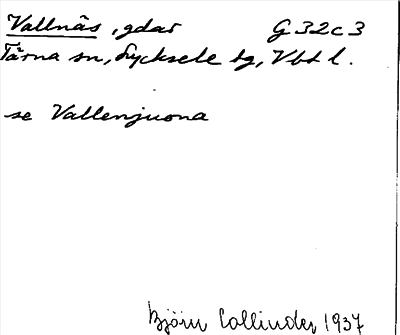 Vallnäs, gdar G 32 c 3
Tärna sn, Lycksele tg, Vbt l.
se Vallenjuona
Björn Collinder 1937